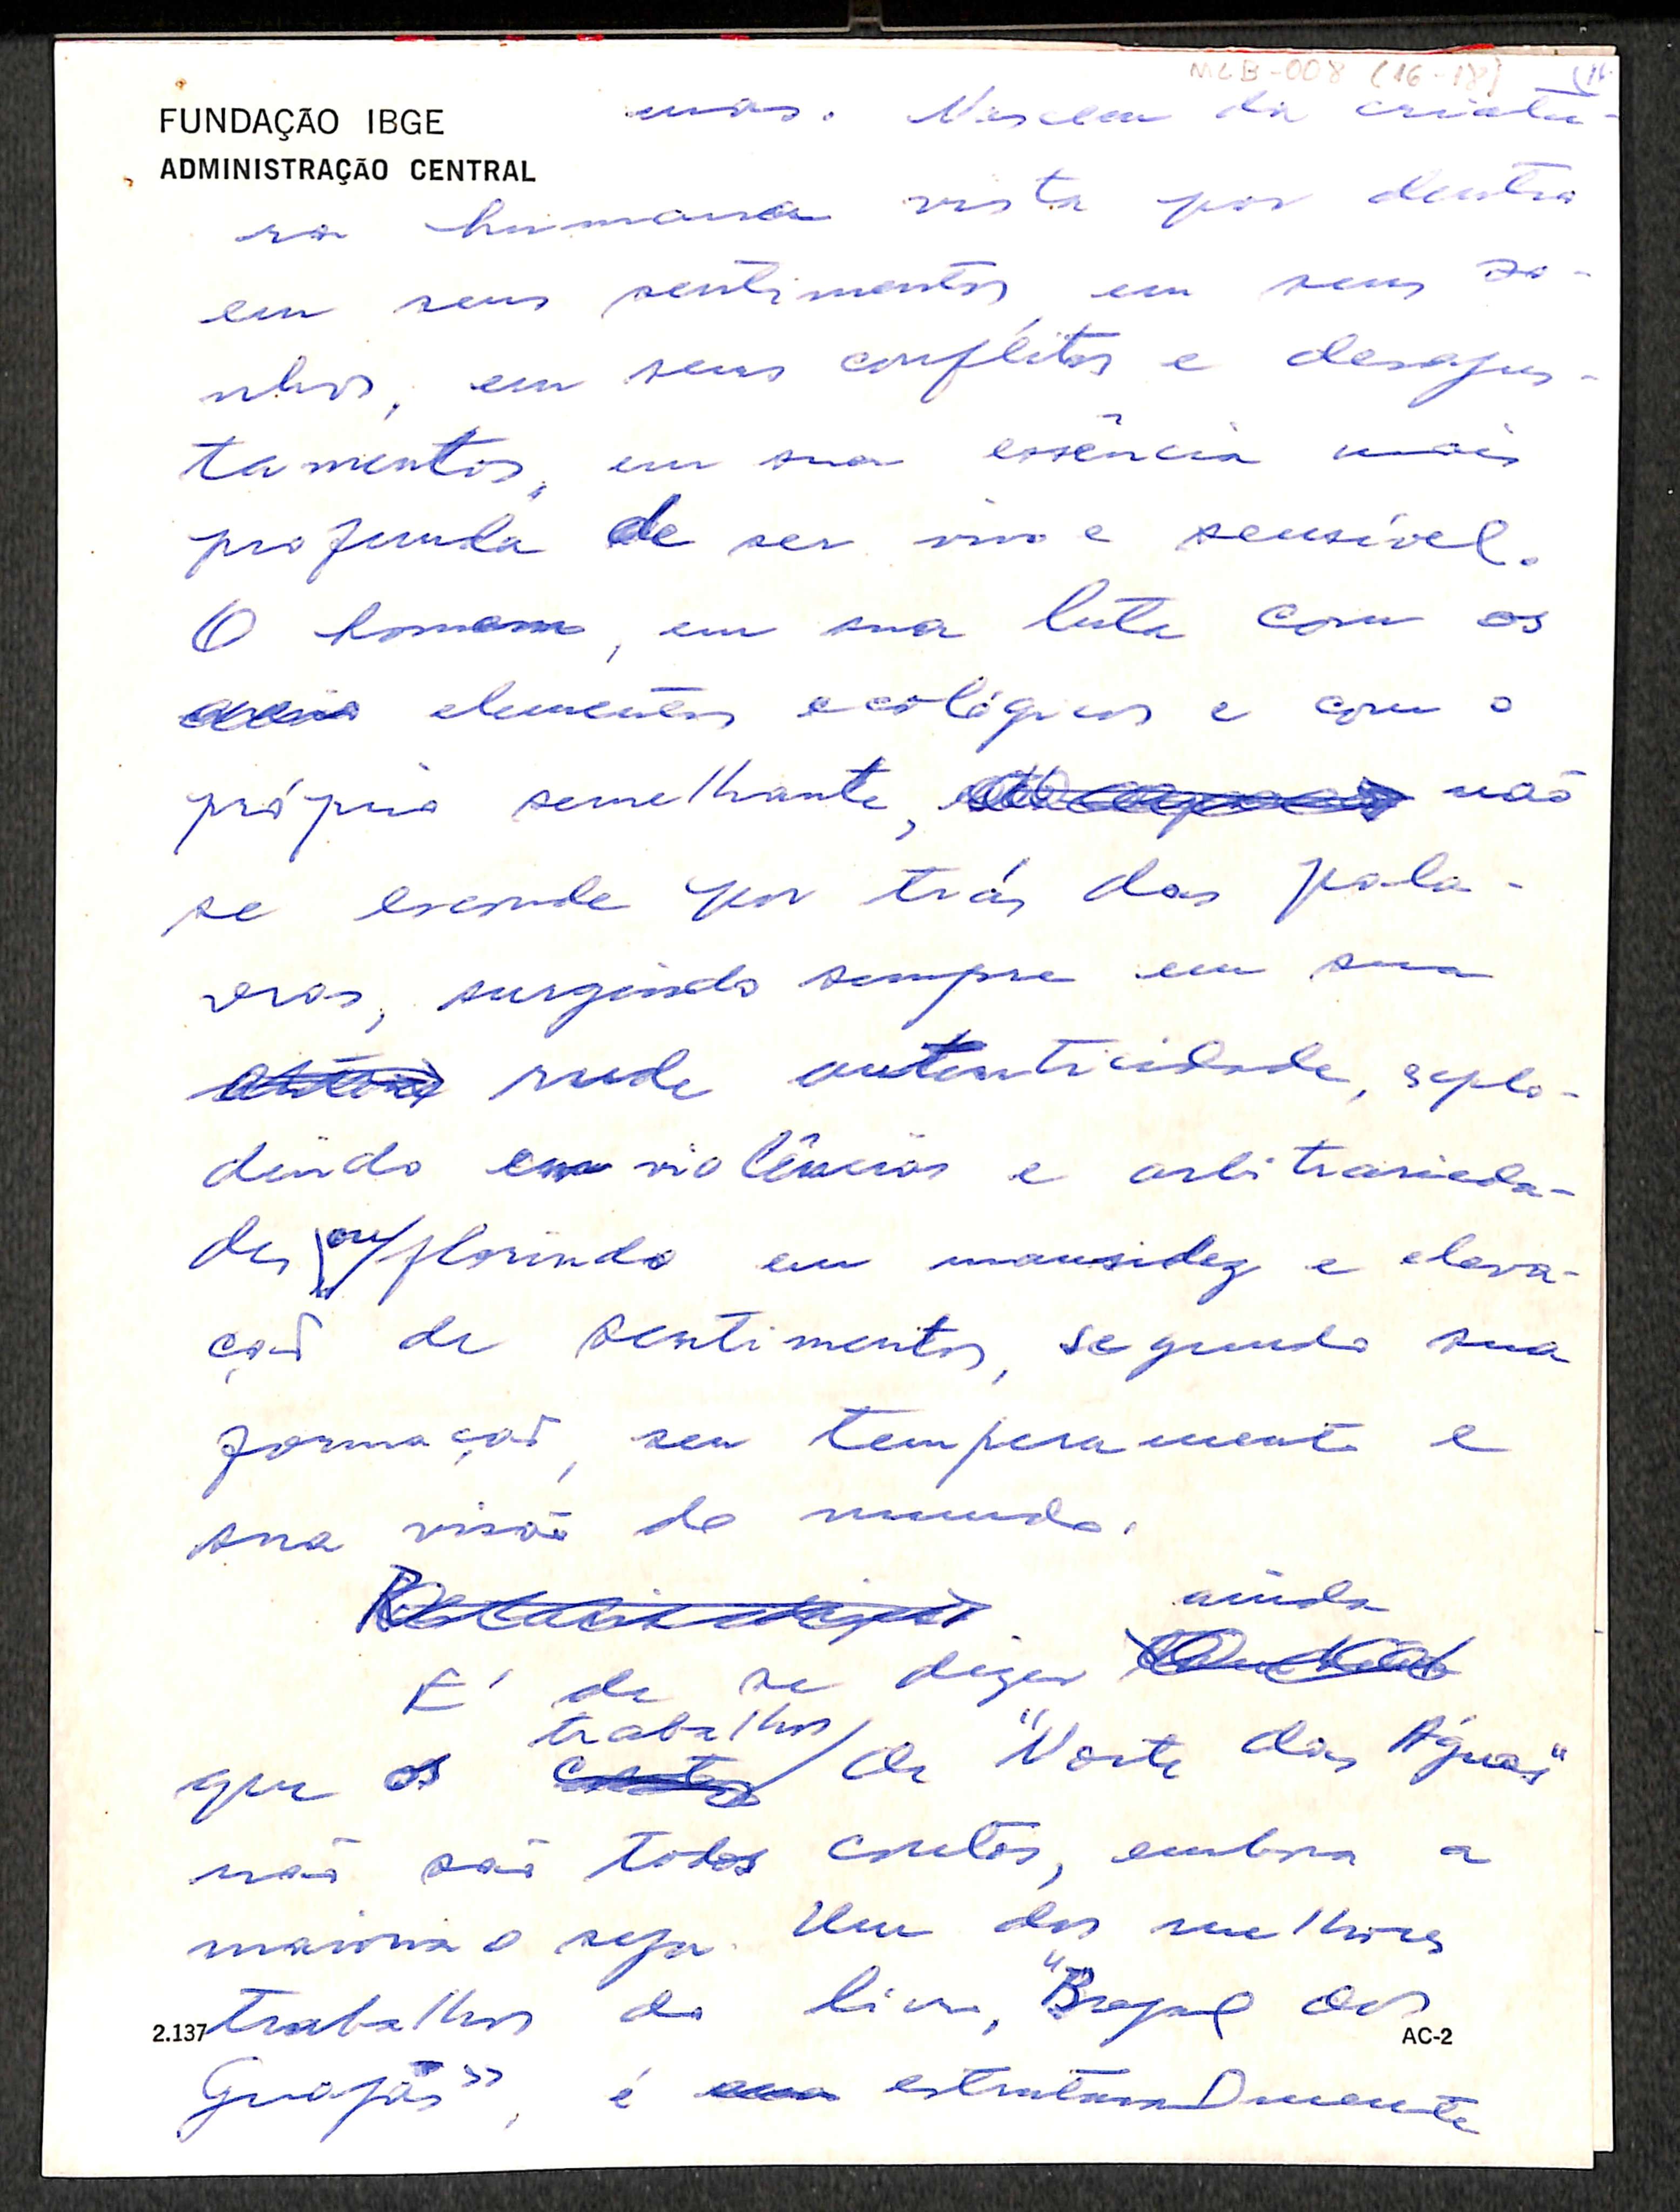 MCB-008 (16-18)
FUNDAÇÃO IBGE
ADMINISTRAÇÃO CENTRAL
mas. Nascem da criatu-
ra humana vista por dentro
em seus sentimentos, em seus so-
nhos, em seus conflitos e desajus-
tamentos, em sua essência mais
profunda de ser vivo e sensível.
O homem, em sua luta com os
elementos ecológicos e com o
próprio semelhante, não
se esconde por trás das pala-
vras, surgindo sempre em sua
rude autenticidade, explo-
dindo em violências e arbitrarieda-
des ou florindo em mansidez e eleva-
ção de sentimentos, segundo sua
formação, seu temperamento e
sua visão do mundo.
ainda
É de se dizer
trabalhos
que os contos de "Norte das Águas"
não são todos contos, embora a
maioria o seja. Um dos melhores
trabalhos do livro, "Brejal dos
2.137 AC-2
Guajás", é estruturalmente